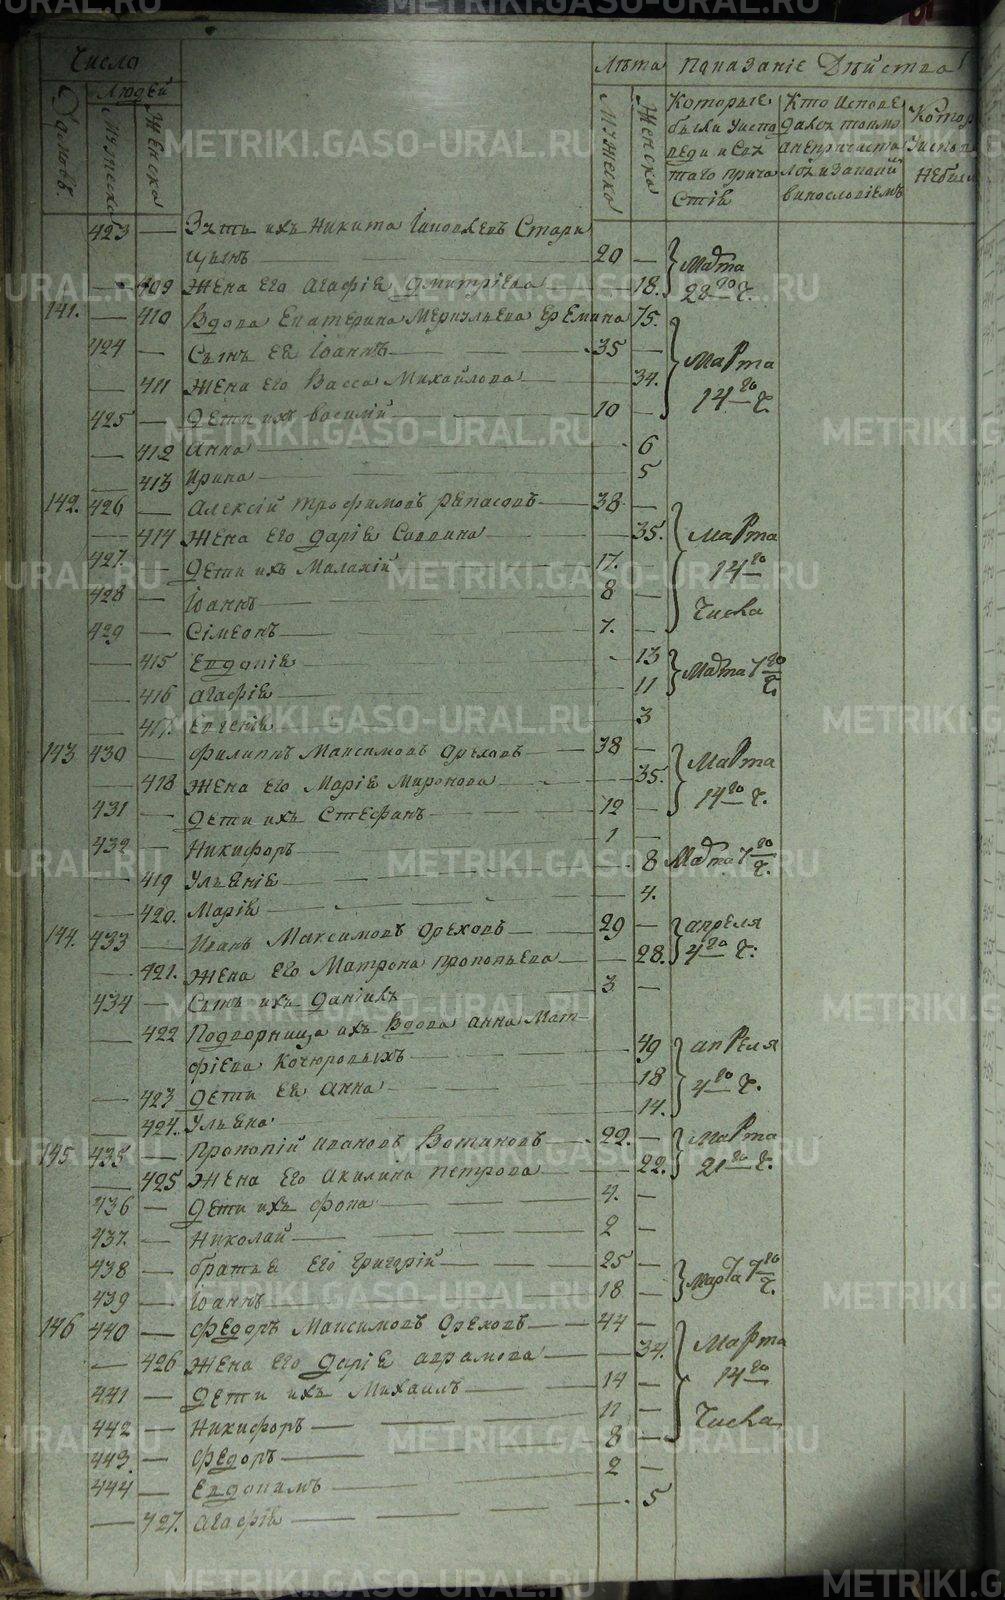 Числа
Лѣта Показаніе Дѣйства
Людей
Домовъ. Мужеска Женска
Мужеска Женска
Которые были уиспо веди и Свя таго прича стія
Кто испове дался токмо а непричаста лся изапаки винословіемъ
Котор уиспо небыл
423 — Зять ихъ Никита Іаковлевъ Стари
цынъ — 20 — Марта
— 409 Жена его Агафія Дмитріева — 18. 28го Ч.
141. — 410 Вдова Екатерина Меркульева Еремина 75.
424 — Сынъ ея Іоаннъ — 35 — Марта
— 411 Жена его Васса Михайлова — 34. 14го Ч.
425 — Дети ихъ Василій — 10 —
— 412 Анна — 6
— 413 Ирина — 5
142. 426 — Алексій Трофимовъ Репасовъ — 38 —
— 414 Жена его Дарія Саввина — 35. Марта
427. — Дети ихъ Малахій — 17. 14го
428 — Іоаннъ — 8 — Числа
429 — Сімеонъ — 7. —
— 415 Евдокія — 13 Марта 7го
— 416 Агафія — 11 Ч.
— 417. Евгенія — 3
143 430 — Филиппъ Максимовъ Ореховъ — 38 — Марта
— 418 Жена его Марія Миронова — 35.
431 — Дети ихъ Стефанъ — 12 — 14го Ч.
432 — Никифоръ — 1 —
— 419 Ульянія — 8 Марта 7го Ч.
— 420. Марія — 4.
144. 433 — Иванъ Максимовъ Ореховъ — 29 — апреля
— 421. Жена его Матрона Прокопьева — 28. 4го Ч.
434 — Сынъ ихъ Даніилъ — 3 —
422 Подворница ихъ Вдова Анна Мат-
фіева Кочюровыхъ — 49 апреля
— 423 Дети ея Анна — 18 4го Ч.
— 424. Ульяна — 14.
145 435 — Прокопій Ивановъ Вотиновъ — 22. — Марта
— 425 Жена его Акилина Петрова — 22. 21го Ч.
436 — Дети ихъ Фока — 4. —
437. — Николай — 2 —
438 — братья его Григорій — 25 — Марта 7го
439 — Іоаннъ — 18 — Ч.
146 440 — Федоръ Максимовъ Ореховъ — 44 —
— 426 Жена его Дарія Аврамова — 34. Марта
441 — Дети ихъ Михаилъ — 14 — 14го
442 — Никифоръ — 11 — Числа
443. — Федоръ — 8 —
444 — Евдокимъ — 2 —
— 427. Агафія — 5
METRIKI.GASO-URAL.RU